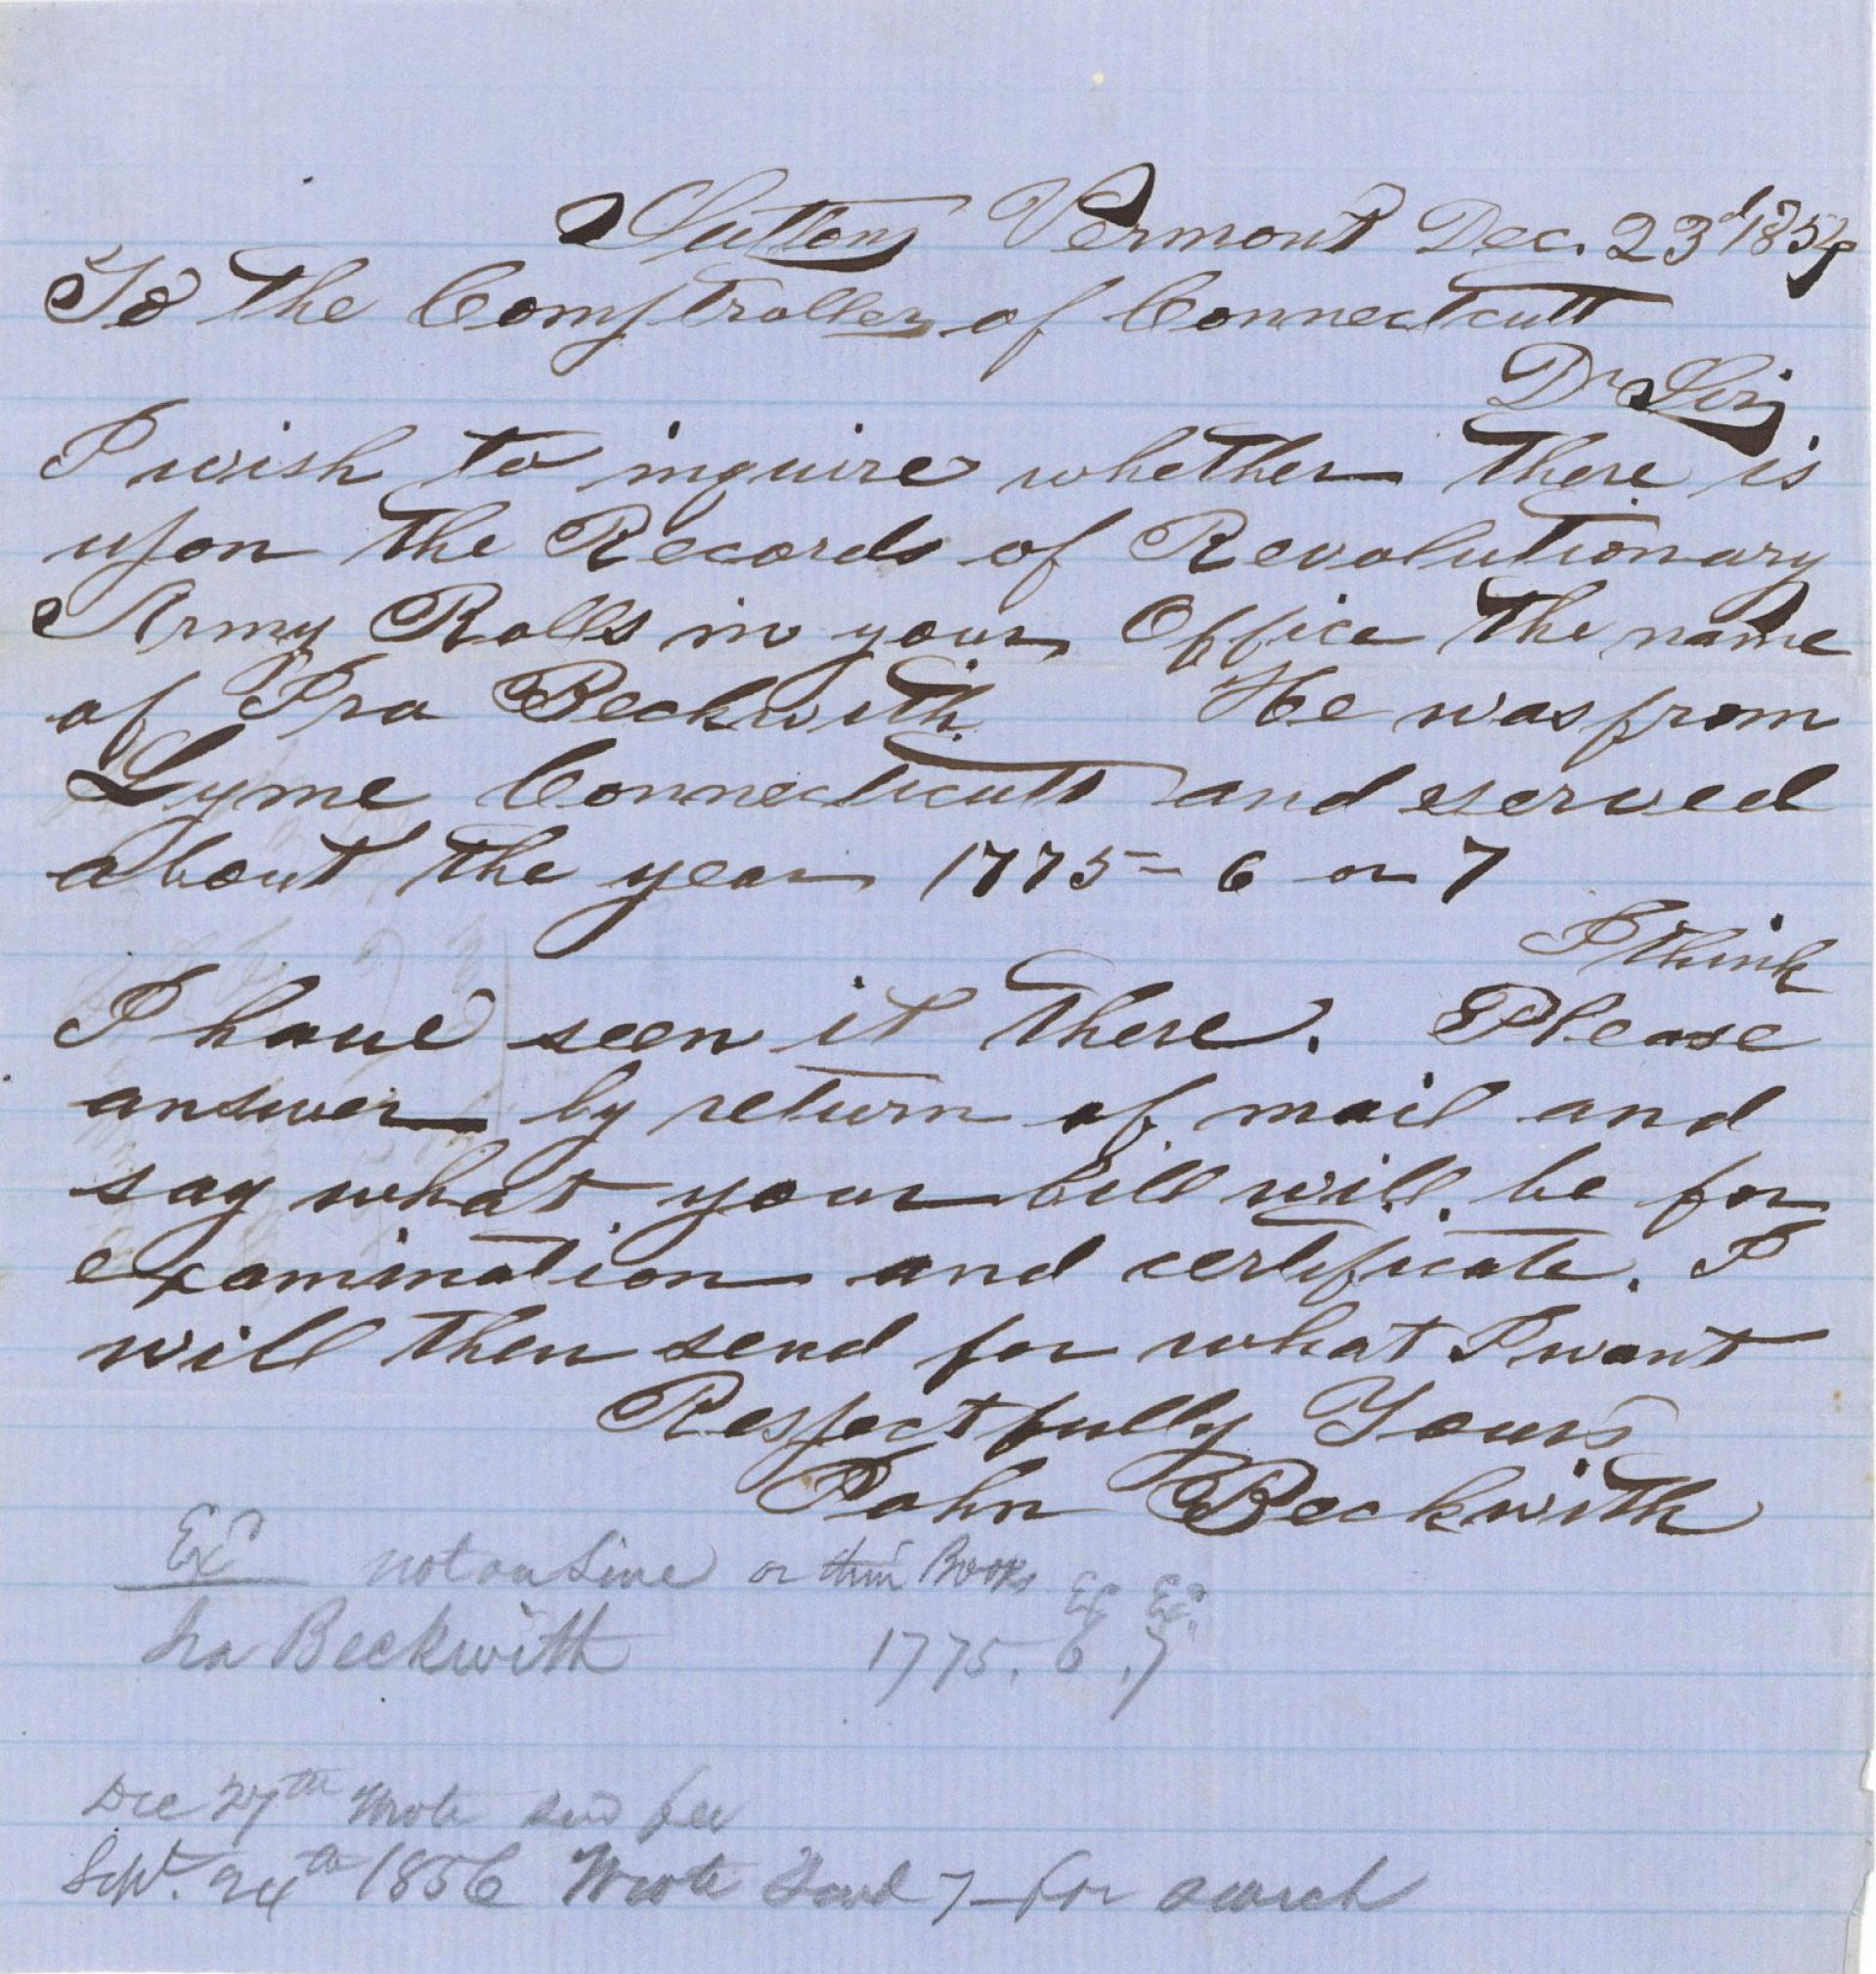 Sutton Vermont Dec. 23d 1854
To the Comptroller of Connecticutt
Dr Sir
I wish to inquire whether there is
upon the Records of Revolutionary
Army Rolls in your Office the name
of Ira Beckwith He was from
Lyme Connecticutt and served
about the year 1775-6 or 7
I think
I have seen it there. Please
answer by return of mail and
say what your bill will be for
examination and certificate. I
will then send for what I want
Respectfully Yours
John Beckwith
Exd not on Line or Books
Exd Exd
Ira Beckwith 1775. 6. 7
Dec 27th Wrote send fee
Sept. 24th 1856 Wrote Send for search